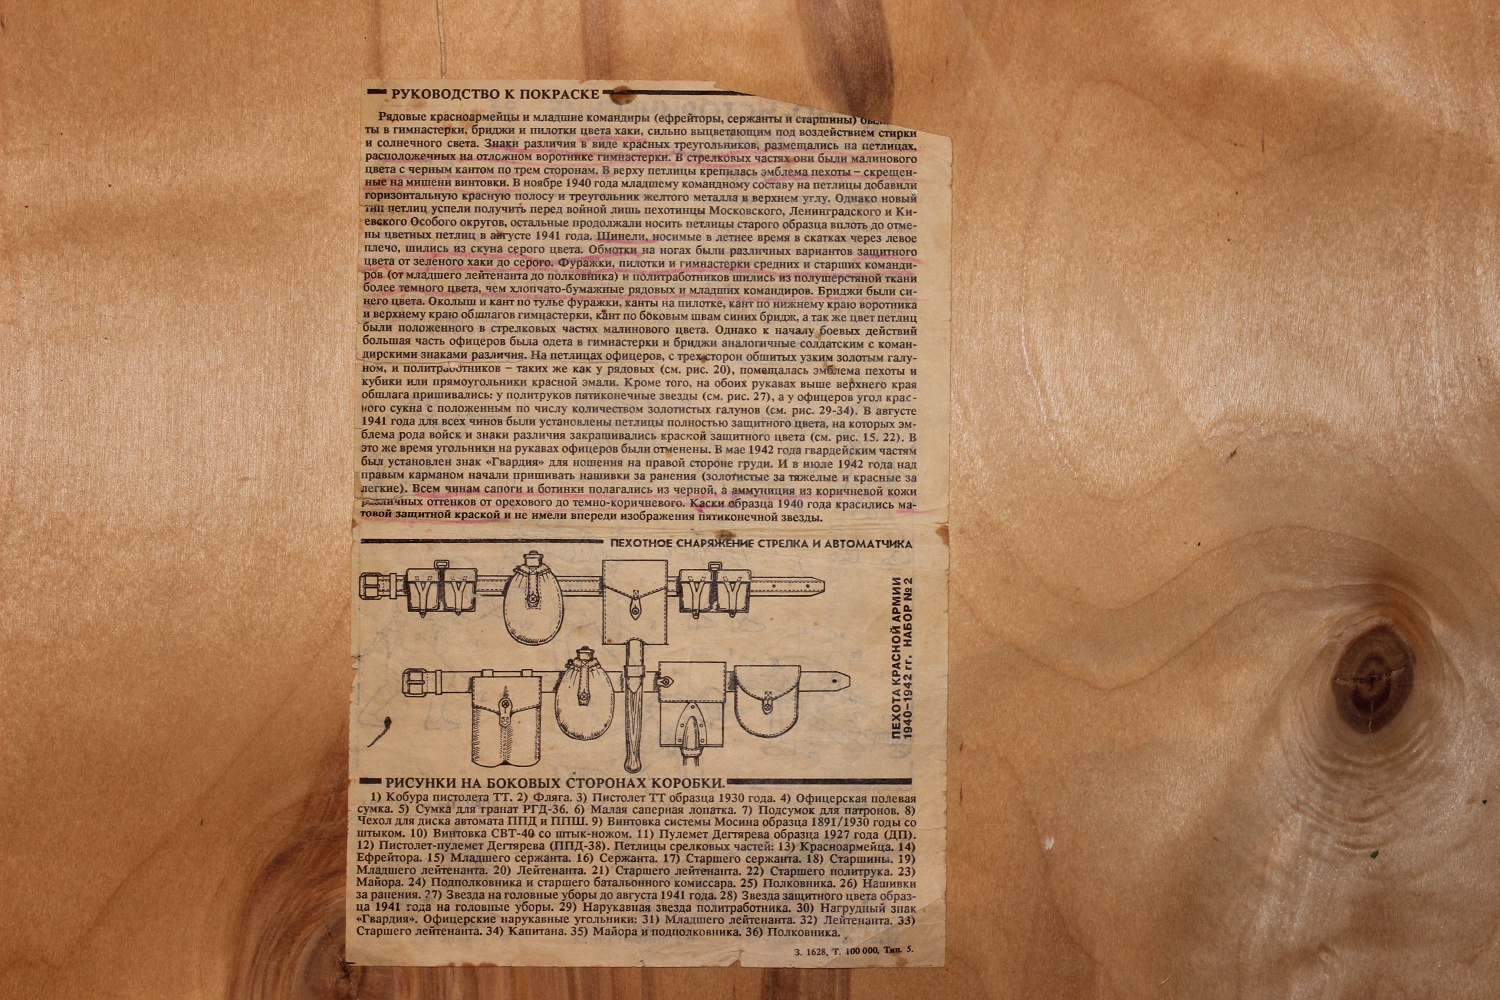 РУКОВОДСТВО К ПОКРАСКЕ
Рядовые красноармейцы и младшие командиры (ефрейторы, сержанты и старшины)
ты в гимнастерки, бриджи и пилотки цвета хаки, сильно выцветающим под воздействием стирки
и солнечного света. Знаки различия в виде красных треугольников, размещались на петлицах,
расположенных на отложном воротнике гимнастерки. В стрелковых частях они были малинового
цвета с черным кантом по трем сторонам. В верху петлицы крепилась эмблема пехоты – скрещен-
ные на мишени винтовки. В ноябре 1940 года младшему командному составу на петлицы добавили
горизонтальную красную полосу и треугольник желтого металла в верхнем углу. Однако новый
тип петлиц успели получить перед войной лишь пехотинцы Московского, Ленинградского и Ки-
евского Особого округов, остальные продолжали носить петлицы старого образца вплоть до отме-
ны цветных петлиц в августе 1941 года. Шинели, носимые в летнее время в скатках через левое
плечо, шились из скуна серого цвета. Обмотки на ногах были различных вариантов защитного
цвета от зеленого хаки до серого. Фуражки, пилотки и гимнастерки средних и старших команди-
ров (от младшего лейтенанта до полковника) и политработников шились из полушерстяной ткани
более темного цвета, чем хлопчато-бумажные рядовых и младших командиров. Бриджи были си-
него цвета. Околыш и кант по тулье фуражки, канты на пилотке, кант по нижнему краю воротника
и верхнему краю обшлагов гимнастерки, кант по боковым швам синих бридж, а так же цвет петлиц
были положенного в стрелковых частях малинового цвета. Однако к началу боевых действий
большая часть офицеров была одета в гимнастерки и бриджи аналогичные солдатским с коман-
дирскими знаками различия. На петлицах офицеров, с трех сторон обшитых узким золотым галу-
ном, и политработников – таких же как у рядовых (см. рис. 20), помещалась эмблема пехоты и
кубики или прямоугольники красной эмали. Кроме того, на обоих рукавах выше верхнего края
обшлага пришивались: у политруков пятиконечные звезды (см. рис. 27), а у офицеров угол крас-
ного сукна с положенным по числу количеством золотистых галунов (см. рис. 29-34). В августе
1941 года для всех чинов были установлены петлицы полностью защитного цвета, на которых эм-
блема рода войск и знаки различия закрашивались краской защитного цвета (см. рис. 15. 22). В
это же время угольники на рукавах офицеров были отменены. В мае 1942 года гвардейским частям
был установлен знак «Гвардия» для ношения на правой стороне груди. И в июле 1942 года над
правым карманом начали пришивать нашивки за ранения (золотистые за тяжелые и красные за
легкие). Всем чинам сапоги и ботинки полагались из черной, а аммуниция из коричневой кожи
различных оттенков от орехового до темно-коричневого. Каски образца 1940 года красились ма-
товой защитной краской и не имели впереди изображения пятиконечной звезды.
ПЕХОТНОЕ СНАРЯЖЕНИЕ СТРЕЛКА И АВТОМАТЧИКА
ПЕХОТА КРАСНОЙ АРМИИ
1940–1942 гг. НАБОР № 2
РИСУНКИ НА БОКОВЫХ СТОРОНАХ КОРОБКИ.
1) Кобура пистолета ТТ. 2) Фляга. 3) Пистолет ТТ образца 1930 года. 4) Офицерская полевая
сумка. 5) Сумка для гранат РГД-36. 6) Малая саперная лопатка. 7) Подсумок для патронов. 8)
Чехол для диска автомата ППД и ППШ. 9) Винтовка системы Мосина образца 1891/1930 годы со
штыком. 10) Винтовка СВТ-40 со штык-ножом. 11) Пулемет Дегтярева образца 1927 года (ДП).
12) Пистолет-пулемет Дегтярева (ППД-38). Петлицы срелковых частей: 13) Красноармейца. 14)
Ефрейтора. 15) Младшего сержанта. 16) Сержанта. 17) Старшего сержанта. 18) Старшины. 19)
Младшего лейтенанта. 20) Лейтенанта. 21) Старшего лейтенанта. 22) Старшего политрука. 23)
Майора. 24) Подполковника и старшего батальонного комиссара. 25) Полковника. 26) Нашивки
за ранения. 27) Звезда на головные уборы до августа 1941 года. 28) Звезда защитного цвета образ-
ца 1941 года на головные уборы. 29) Нарукавная звезда политработника. 30) Нагрудный знак
«Гвардия». Офицерские нарукавные угольники: 31) Младшего лейтенанта. 32) Лейтенанта. 33)
Старшего лейтенанта. 34) Капитана. 35) Майора и подполковника. 36) Полковника.
З. 1628, Т. 100 000, Тип. 5.